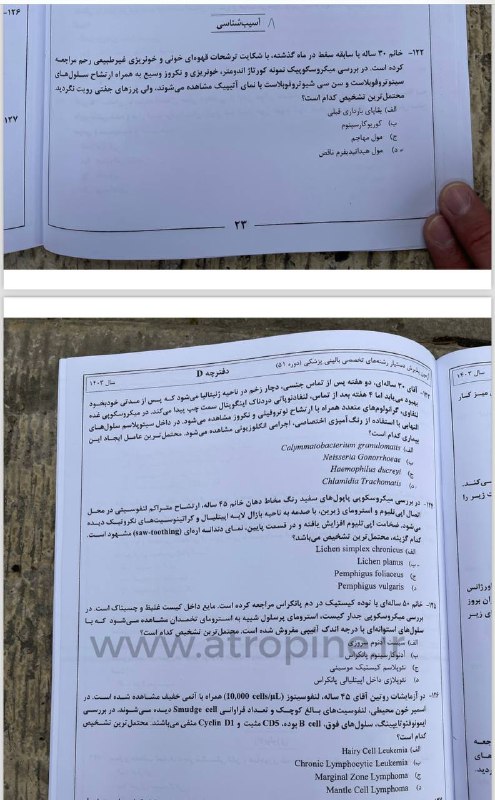 -۱۲۶
۸ آسیب‌شناسی
۱۲۲- خانم ۳۰ ساله با سابقه سقط در ماه گذشته، با شکایت ترشحات قهوه‌ای خونی و خونریزی غیرطبیعی رحم مراجعه
کرده است. در بررسی میکروسکوپیک نمونه کورتاژ اندومتر، خونریزی و نکروز وسیع به همراه ارتشاح سلول‌های
سیتوتروفوبلاست و سن سی شیوتروفوبلاست با نمای آتیپیک مشاهده می‌شوند. ولی پرزهای جفتی رویت نگردید.
محتمل‌ترین تشخیص کدام است؟
الف) بقایای بارداری قبلی
ب) کوریوکارسینوم
ج) مول مهاجم
د) مول هیداتیدیفرم ناقص
۱۲۷
۲۳
آزمون پذیرش دستیار رشته‌های تخصصی بالینی پزشکی (دوره ۵۱)
دفترچه D
سال ۱۴۰۳
سال ۱۴۰۳
آقای ۳۰ ساله‌ای، دو هفته پس از تماس جنسی، دچار زخم در ناحیه ژنیتالیا می‌شود که پس از مدتی خودبخود
بهبود می‌یابد اما ۴ هفته بعد از تماس، لنفادنوپاتی دردناک اینگوینال سمت چپ پیدا می‌کند. در میکروسکوپی غده
لنفاوی، گرانولوم‌های متعدد همراه با ارتشاح نوتروفیلی و نکروز مشاهده می‌شود. در داخل سیتوپلاسم سلول‌های
التهابی با استفاده از رنگ‌آمیزی اختصاصی، اجرامی انکلوزیونی مشاهده می‌شود. محتمل‌ترین عامل ایجاد این
بیماری کدام است؟
الف) Calymmatobacterium granulomatis
ب) Neisseria Gonorrhoeae
ج) Haemophilus ducreyi
د) Chlamidia Trachomatis
۱۲۴- در بررسی میکروسکوپی پاپول‌های سفید رنگ مخاط دهان خانم ۴۵ ساله، ارتشاح متراکم لنفوسیتی در محل
اتصال اپی‌تلیوم و استرومای زیرین، با صدمه به ناحیه بازال لایه اپیتلیال و کراتینوسیت‌های نکروتیک دیده
می‌شود. ضخامت اپی‌تلیوم افزایش یافته و در قسمت پایین، نمای دندانه اره‌ای (saw-toothing) مشهود است.
کدام گزینه، محتمل‌ترین تشخیص می‌باشد؟
الف) Lichen simplex chronicus
ب) Lichen planus
ج) Pemphigus foliaceus
د) Pemphigus vulgaris
۱۲۵- خانم ۵۰ ساله‌ای با توده کیستیک در دم پانکراس مراجعه کرده است. مایع داخل کیست غلیظ و چسبناک است. در
بررسی میکروسکوپی جدار کیست، استرومای پرسلول شبیه به استرومای تخمدان مشاهده می‌شود که با
سلول‌های استوانه‌ای با درجه اندک آتیپی مفروش شده است. محتمل‌ترین تشخیص کدام است؟
الف) سیست آدنوم سروزی
ب) آدنوکارسینوم پانکراس
ج) نئوپلاسم کیستیک موسینی
د) نئوپلازی داخل اپیتلیالی پانکراس
www.atropine.ir
۱۲۶- در آزمایشات روتین آقای ۴۵ ساله، لنفوسیتوز (10,000 cells/µL) همراه با آنمی خفیف مشاهده شده است. در
اسمیر خون محیطی، لنفوسیت‌های بالغ کوچک و تعداد فراوانی Smudge cell دیده می‌شوند. در بررسی
ایمونوفنوتایپینگ، سلول‌های فوق، B cell بوده، CD5 مثبت و Cyclin D1 منفی می‌باشند. محتمل‌ترین تشخیص
کدام است؟
الف) Hairy Cell Leukemia
ب) Chronic Lymphocytic Leukemia
ج) Marginal Zone Lymphoma
د) Mantle Cell Lymphoma